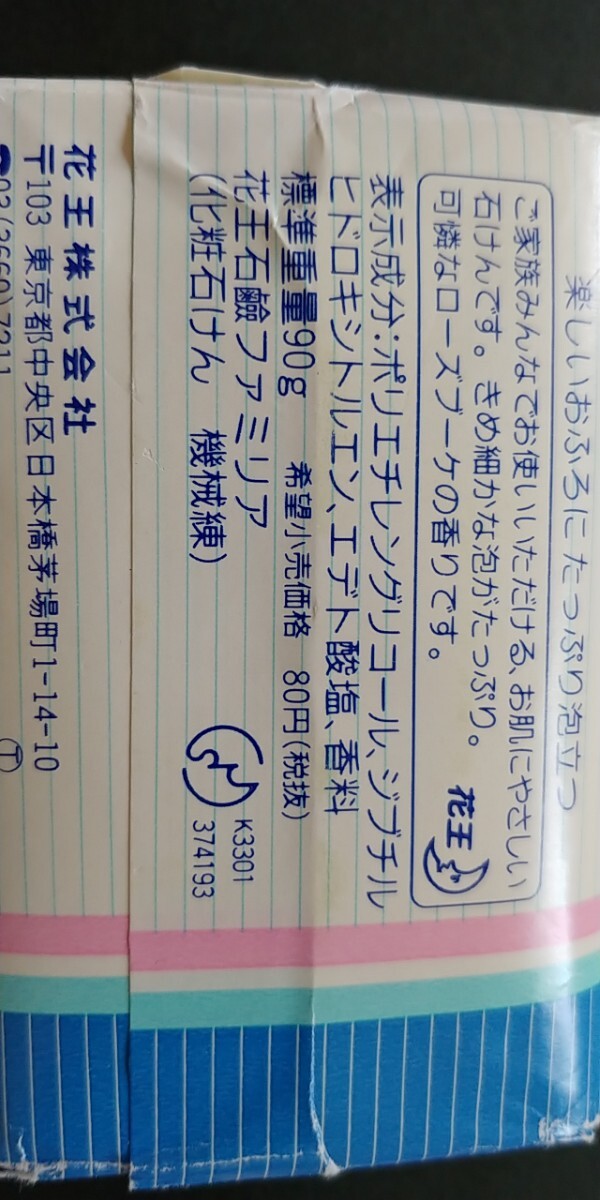 楽しいおふろに たっぷり泡立つ
ご家族みんなでお使いいただける、お肌にやさしい
石けんです。きめ細かな泡がたっぷり。
可憐なローズブーケの香りです。
花王
表示成分:ポリエチレングリコール、ジブチル
ヒドロキシトルエン、エデト酸塩、香料
標準重量90g 希望小売価格 80円(税抜)
花王石鹼ファミリア
(化粧石けん 機械練)
K3301
374193
花王株式会社
〒103 東京都中央区日本橋茅場町1-14-10
03(3660)7211
Ⓣ